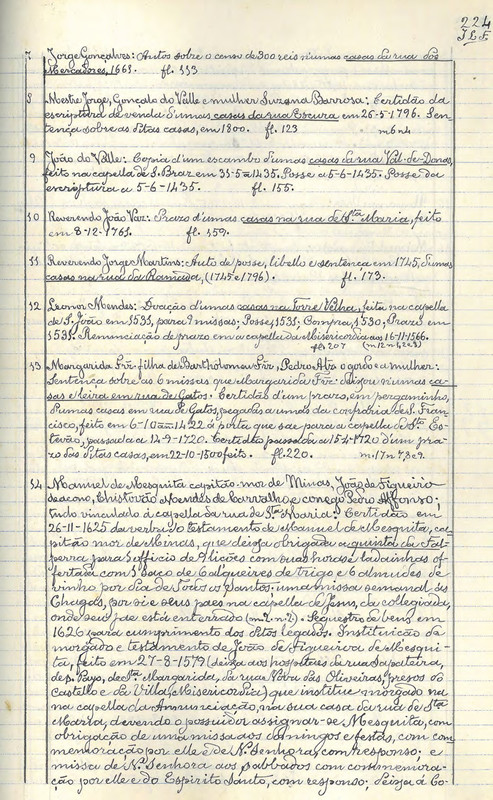 224
J.L.F.
7 Jorge Gonçalves: Autos sobre o censo de 300 reis n'umas casas da rua dos
Mercadores, 1661. fl. 113
8 Mestre Jorge, Gonçalo do Valle e mulher Suzana Barrosa: Certidão da
escriptura de venda d'umas casas da rua Escura em 26-5-1796. Sen-
tença sobre as ditas casas, em 1800. fl. 123 m6n4
9 João do Valle: Copia d'um escambo d'umas casas da rua Val-de-Donas,
feito na capella de S. Braz em 31-5-1435. Posse a 5-6-1435. Posse da
escriptura a 5-6-1435. fl. 155.
10 Reverendo João Vaz: Prazo d'umas casas na rua de Sta Maria, feito
em 8-12-1761. fl. 159.
11 Reverendo Jorge Martins: Auto de posse, libello e sentença em 1745, d'umas
casas na rua da Ramada, (1745 e 1796). fl. 173.
12 Leonor Mendes: Doação d'umas casas na Torre Velha, feita na capella
de S. João em 1531, para 9 missas; Posse, 1531; Compra, 1530; Prazo em
1531. Renunciação de prazo em a capella da Misericordia aos 16-11-1566.
fl. 207 (m12n1,2e3)
13 Margarida Frz. filha de Bartholomeu Frz, Pedro Alvz o gordo e a mulher:
Sentença sobre as 6 missas que Margarida Frz. deixou n'umas ca-
sas e leira em rua de Gatos. Certidão d'um prazo, em pergaminho,
d'umas casas em rua de Gatos, pegadas a umas da confraria de S. Fran-
cisco, feito em 6-10-1422 á porta que sae para a capella de Sto Es-
tevão, passada a 12-9-1720. Certidão passada a 15-4-1720 d'um pra-
zo das ditas casas, em 22-10-1500 feito. fl. 220. m.17n.7,8e9.
14 Manuel de Mesquita capitão-mor de Minas, João de Figueiró
deacono, Christovão Mendes de Carvalho e conego Pedro Affonso;
tudo vinculado á capella da rua de Sta Maria: Certidão em
26-11-1625 da verba do testamento de Manuel de Mesquita, ca-
pitão mor de Minas, que deixa obrigada a quinta da Fal-
perra para 1 officio de 9 lições com suas horas e ladainhas of-
fertada com 1 saco de 6 alqueires de trigo e 6 almudes de
vinho por dia de Todos os Santos: uma missa semanal das
Chagas, por si e seus paes na capella de Jesus, da collegiada,
onde seu pae está enterrado (m.2.n.2). Sequestro de bens em
1626 para cumprimento dos ditos legados. Instituição de
morgado e testamento de João de Figueiroa de Mesqui-
ta, feito em 27-8-1579 (deixa aos hospitaes da rua Sapateira,
de S. Payo, de Sta Margarida, da rua Nova das Oliveiras, presos do
Castello e da Villa, Misericordia) que institue morgado na
na capella da Annunciação, na sua casa da rua de Sta
Maria, devendo o possuidor assignar-se Mesquita, com
obrigação de uma missa dos domingos e festas, com com-
memoração por elle e de N. Senhora, com responso; e
missa de N. Senhora aos sabbados com commemora-
ção por elle e do Espirito Santo, com responso; deixa á Co-